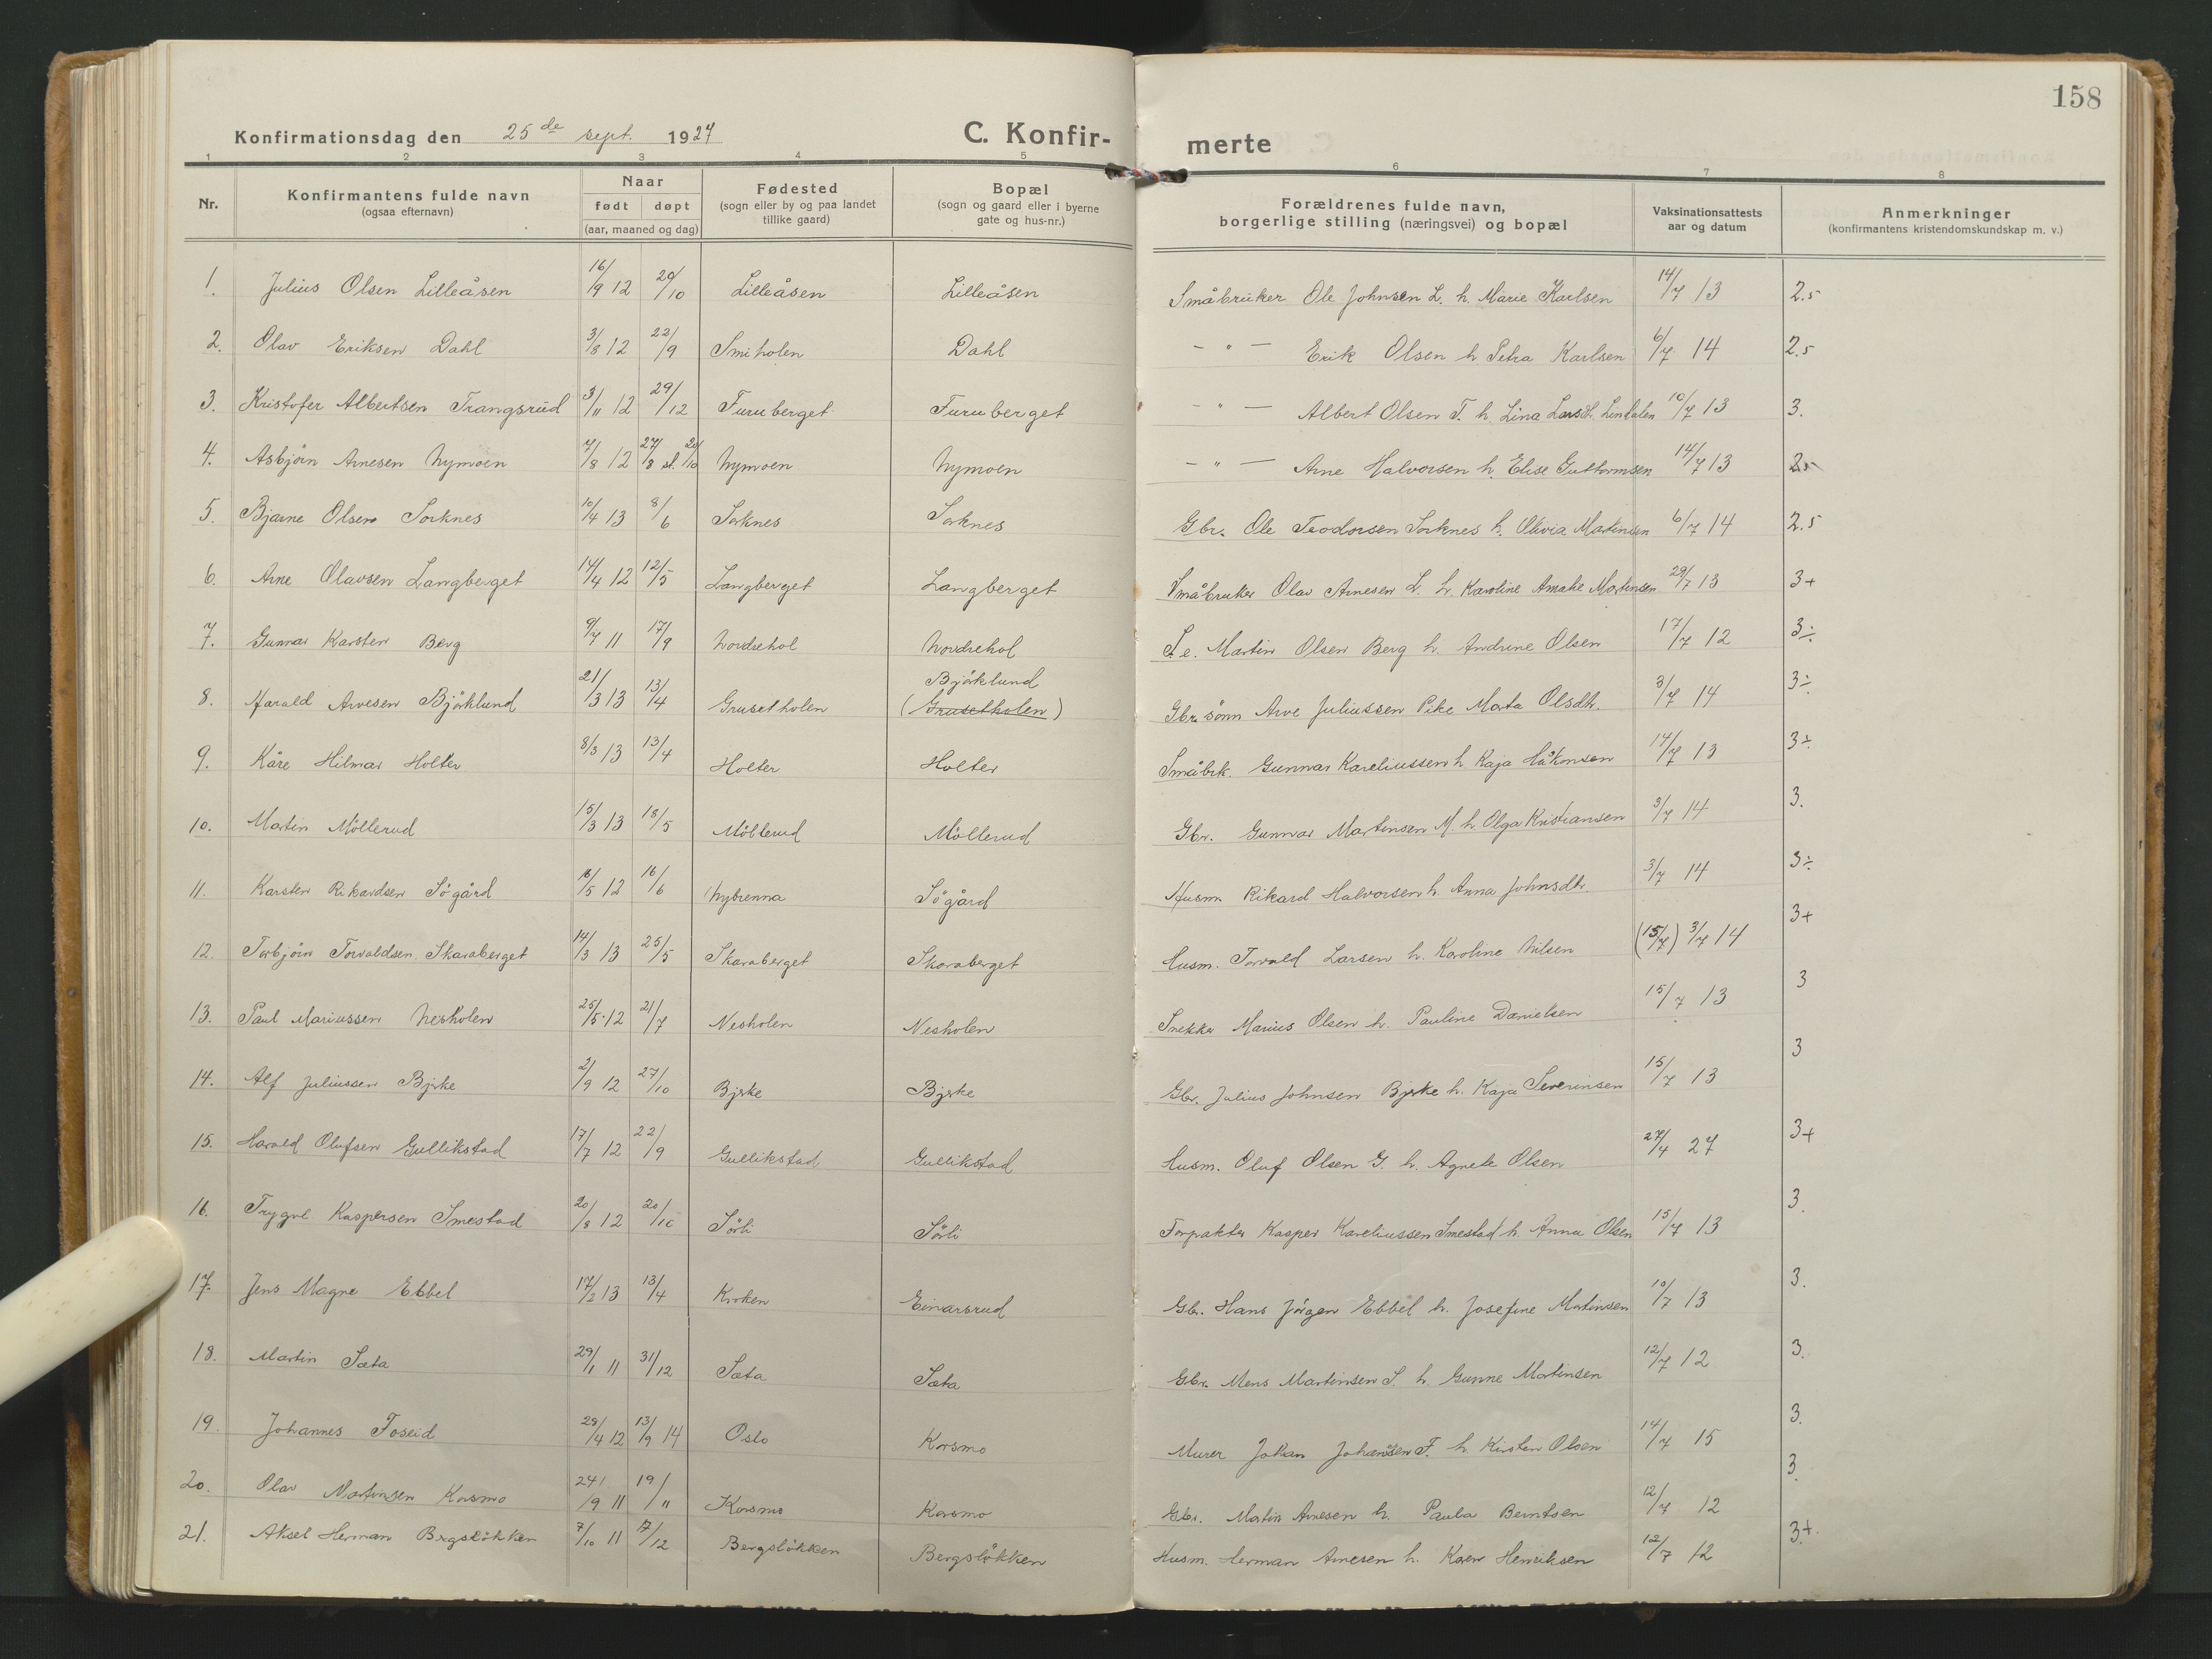 158
Konfirmationsdag den 25de sept. 1927
C. Konfir-
merte
1 2 3 4 5 6 7 8
Nr.
Konfirmantens fulde navn
(ogsaa efternavn)
Naar
født døpt
(aar, maaned og dag)
Fødested
(sogn eller by og paa landet
tillike gaard)
Bopæl
(sogn og gaard eller i byerne
gate og hus-nr.)
Forældrenes fulde navn,
borgerlige stilling (næringsvei) og bopæl
Vaksinationsattests
aar og datum
Anmerkninger
(konfirmantens kristendomskundskap m. v.)
1. Julius Olsen Lilleåsen 16/9 12 20/10 Lilleåsen Lilleåsen Småbruker Ole Johnsen L. h. Marie Karlsen 14/7 13 2.5
2. Olav Eriksen Dahl 3/8 12 22/9 Smiholen Dahl - " - Erik Olsen h. Petra Karlsen 6/7 14 2.5
3. Kristofer Albertsen Trangsrud 3/11 12 29/12 Furuberget Furuberget - " - Albert Olsen T. h. Lina Larsdt. 10/7 13 3.
4. Asbjörn Arnesen Nymoen 7/8 12 27/8 st. 20/10 Nymoen Nymoen - " - Arne Halvorsen h. Elise Guttormsen 14/7 13 2.5
5. Bjarne Olsen Sorknes 10/4 13 8/6 Sorknes Sorknes Gbr. Ole Teodorsen Sorknes h. Olivia Martinsen 6/7 14 2.5
6. Arne Olavsen Langberget 14/4 12 12/5 Langberget Langberget Småbruker Olav Arnesen L. h. Karoline Amalie Martinsen 29/7 13 3+
7. Gunnar Karsten Berg 9/7 11 17/9 Nordsehol Nordsehol S.e. Martin Olsen Berg h. Andrine Olsen 17/7 12 3÷
8. Harald Arvesen Björklund 21/3 13 13/4 Grusetholen Björklund (Grusetholen) Gbr. sönn Arve Juliussen Pike Marta Olsdtr. 3/7 14 3÷
9. Kåre Hilmar Holter 8/3 13 13/4 Holter Holter Småbrk. Gunnar Kareliussen h. Kaja Håkonsen 14/7 13 3÷
10. Martin Möllerud 15/3 13 18/5 Möllerud Möllerud Gbr. Gunnar Martinsen M. h. Olga Kristiansen 3/7 14 3.
11. Karsten Rikardsen Sögård 16/5 12 16/6 Nybrenna Sögård Husm. Rikard Halvorsen h. Anna Johnsdtr. 3/7 14 3÷
12. Torbjörn Torvaldsen Skaraberget 14/3 13 25/5 Skaraberget Skaraberget Husm. Torvald Larsen h. Karoline Nilsen (15/7) 3/7 14 3+
13. Paul Mariussen Nesholen 25/5 12 21/7 Nesholen Nesholen Snekker Marius Olsen h. Pauline Danielsen 15/7 13 3
14. Alf Juliussen Bjerke 2/9 12 27/10 Bjerke Bjerke Gbr. Julius Johnsen Bjerke h. Kaja Severinsen 15/7 13 3
15. Harald Olufsen Gullikstad 17/7 12 22/9 Gullikstad Gullikstad Husm. Oluf Olsen G. h. Agnete Olsen 27/4 27 3+
16. Trygve Kaspersen Smestad 20/8 12 20/10 Sörli Sörli Forpakter Kasper Kareliussen Smestad h. Anna Olsen 15/7 13 3.
17. Jens Magne Ebbel 17/2 13 13/4 Kroken Einarsrud Gbr. Hans Jörgen Ebbel h. Josefine Martinsen 10/7 13 3.
18. Martin Sæta 29/1 11 31/12 Sæta Sæta Gbr. Mens Martinsen S. h. Gunne Martinsen 12/7 12 3.
19. Johannes Foseid 29/4 12 13/9 14 Oslo Korsmo Murer Johan Johansen F. h. Kirsten Olsen 14/7 15 3.
20. Olav Martinsen Korsmo 24/9 11 19/11 Korsmo Korsmo Gbr. Martin Arnesen h. Paula Berntsen 12/7 12 3.
21. Aksel Herman Bergslökken 7/10 11 17/12 Bergslökken Bergslökken Husm. Herman Arnesen h. Karen Henriksen 12/7 12 3+.